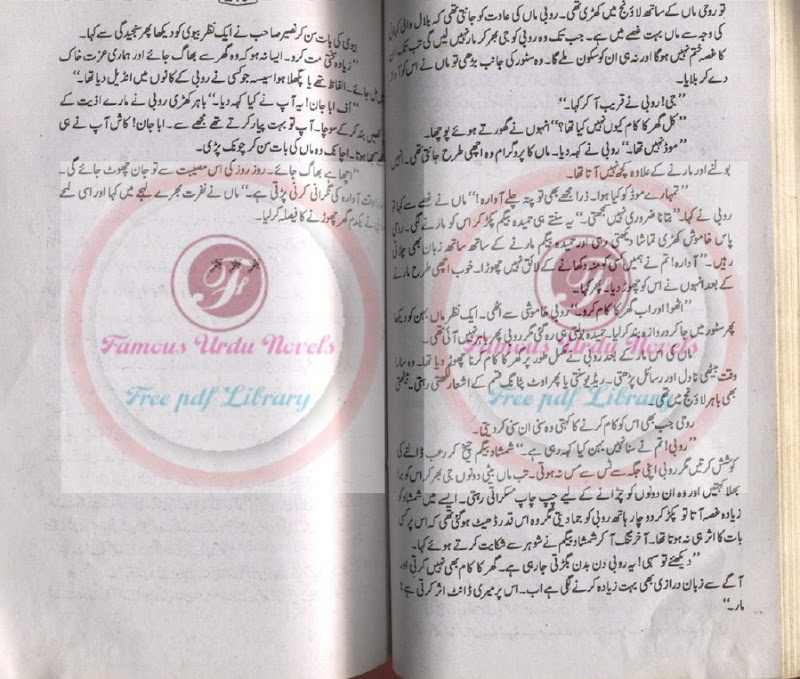 تو روحی ماں کے ساتھ لاؤنج میں کھڑی تھی۔ روبی ماں کی عادت کو جانتی تھی کہ بلال والی کہانی
کی وجہ سے ماں بہت غصے میں ہے۔ جب تک وہ روبی کو جی بھر کر مار نہیں لیں گی تب تک ان
کا غصہ ختم نہیں ہوگا اور نہ ہی ان کو سکون ملے گا۔ وہ سٹور کی جانب بڑھی تو ماں نے اس کو آواز
دے کر بلایا۔
”جی! روبی نے قریب آ کر کہا۔“
”کل گھر کا کام کیوں نہیں کیا تھا؟“ انہوں نے گھورتے ہوئے پوچھا۔
”موڈ نہیں تھا۔“ روبی نے کہہ دیا۔ ماں کا پروگرام وہ اچھی طرح جانتی تھی۔ انہیں
بولنے اور مارنے کے علاوہ کچھ نہیں آتا تھا۔
”تمہارے موڈ کو کیا ہوا۔ ذرا مجھے بھی تو پتہ چلے آوارہ!“ ماں نے غصے سے کہا تو
روبی نے کہا۔ ”بتانا ضروری نہیں سمجھتی۔“ یہ سنتے ہی حمیدہ بیگم پکڑ کر اس کو مارنے لگی۔ روحی
پاس خاموش کھڑی تماشا دیکھتی رہی اور حمیدہ بیگم مارنے کے ساتھ ساتھ زبان بھی چلاتی
رہیں۔ ”آوارہ! تم نے ہمیں کسی کو منہ دکھانے کے لائق نہیں چھوڑا۔ خوب اچھی طرح مارنے
کے بعد انہوں نے اس کو چھوڑ دیا۔ پھر کہا۔
”اٹھو! اور اب گھر کا کام کرو۔“ روبی خاموشی سے اٹھی۔ ایک نظر ماں بہن کو دیکھا
پھر سٹور میں جا کر دروازہ بند کر لیا۔ حمیدہ ہی رہ گئی مگر روبی باہر نہیں آئی تھی۔
اس کے بعد روبی نے مکمل طور پر گھر کا کام کرنا چھوڑ دیا تھا۔ وہ سارا
وقت بیٹھی ناول اور رسائل پڑھتی۔ ریڈیو سنتی یا پھر اوٹ پٹانگ قسم کے اشعار لکھتی رہتی۔ بیٹھتی
بھی باہر لاؤنج میں تھی۔
روحی جب بھی اس کو کام کرنے کا کہتی وہ سنی ان سنی کر دیتی۔
”روبی! تم نے سنا نہیں بہن کیا کہہ رہی ہے۔“ شمشاد بیگم چیخ کر رعب ڈالنے کی
کوشش کرتیں مگر روبی اپنی جگہ سے ٹس سے مس نہ ہوتی۔ تب ماں بیٹی دونوں جی بھر کر اس کو برا
بھلا کہتیں اور وہ ان دونوں کو چڑانے کے لیے چپ چاپ مسکراتی رہتی۔ ایسے میں شمشاد کو
زیادہ غصہ آتا تو پکڑ کر دو چار ہاتھ روبی کو جما دیتی مگر وہ اس قدر ڈھیٹ ہو گئی تھی کہ اس پر کسی
بات کا اثر ہی نہ ہوتا تھا۔ آخر تنگ آ کر شمشاد بیگم نے شوہر سے شکایت کرتے ہوئے کہا۔
”دیکھئے تو سہی! یہ روبی دن بدن بگڑتی جا رہی ہے۔ گھر کا کام بھی نہیں کرتی اور
آگے سے زبان درازی بھی بہت زیادہ کرنے لگی ہے اب۔ اس پر میری ڈانٹ اثر کرتی ہے نا
مار۔“
بیوی کی بات سن کر نصیر صاحب نے ایک نظر بیوی کو دیکھا پھر سنجیدگی سے کہا۔
”زیادہ سختی مت کرو۔ ایسا نہ ہو کہ وہ گھر سے بھاگ جائے اور ہماری عزت خاک
میں مل جائے۔ الفاظ تھے یا پگھلا ہوا سیسہ جو کسی نے روبی کے کانوں میں انڈیل دیا تھا۔“
”اُف ابا جان! یہ آپ نے کیا کہہ دیا۔“ باہر کھڑی روبی نے مارے اذیت کے
آنکھیں بند کر کے سوچا۔ آپ تو بہت پیار کرتے تھے مجھے سے۔ ابا جان! کاش آپ نے ہی
سمجھا ہوتا۔ اچانک وہ ماں کی بات سن کر چونک پڑی۔
”اچھا ہے بھاگ جائے۔ روز روز کی اس مصیبت سے تو جان چھوٹ جائے گی۔
وقت آوارہ کی نگرانی کرنی پڑتی ہے۔“ ماں نے نفرت بھرے لہجے میں کہا اور اسی لمحے
روبی نے یکدم گھر چھوڑنے کا فیصلہ کر لیا۔
Famous Urdu Novels
Free pdf Library
Famous Urdu Novels
Free pdf Library